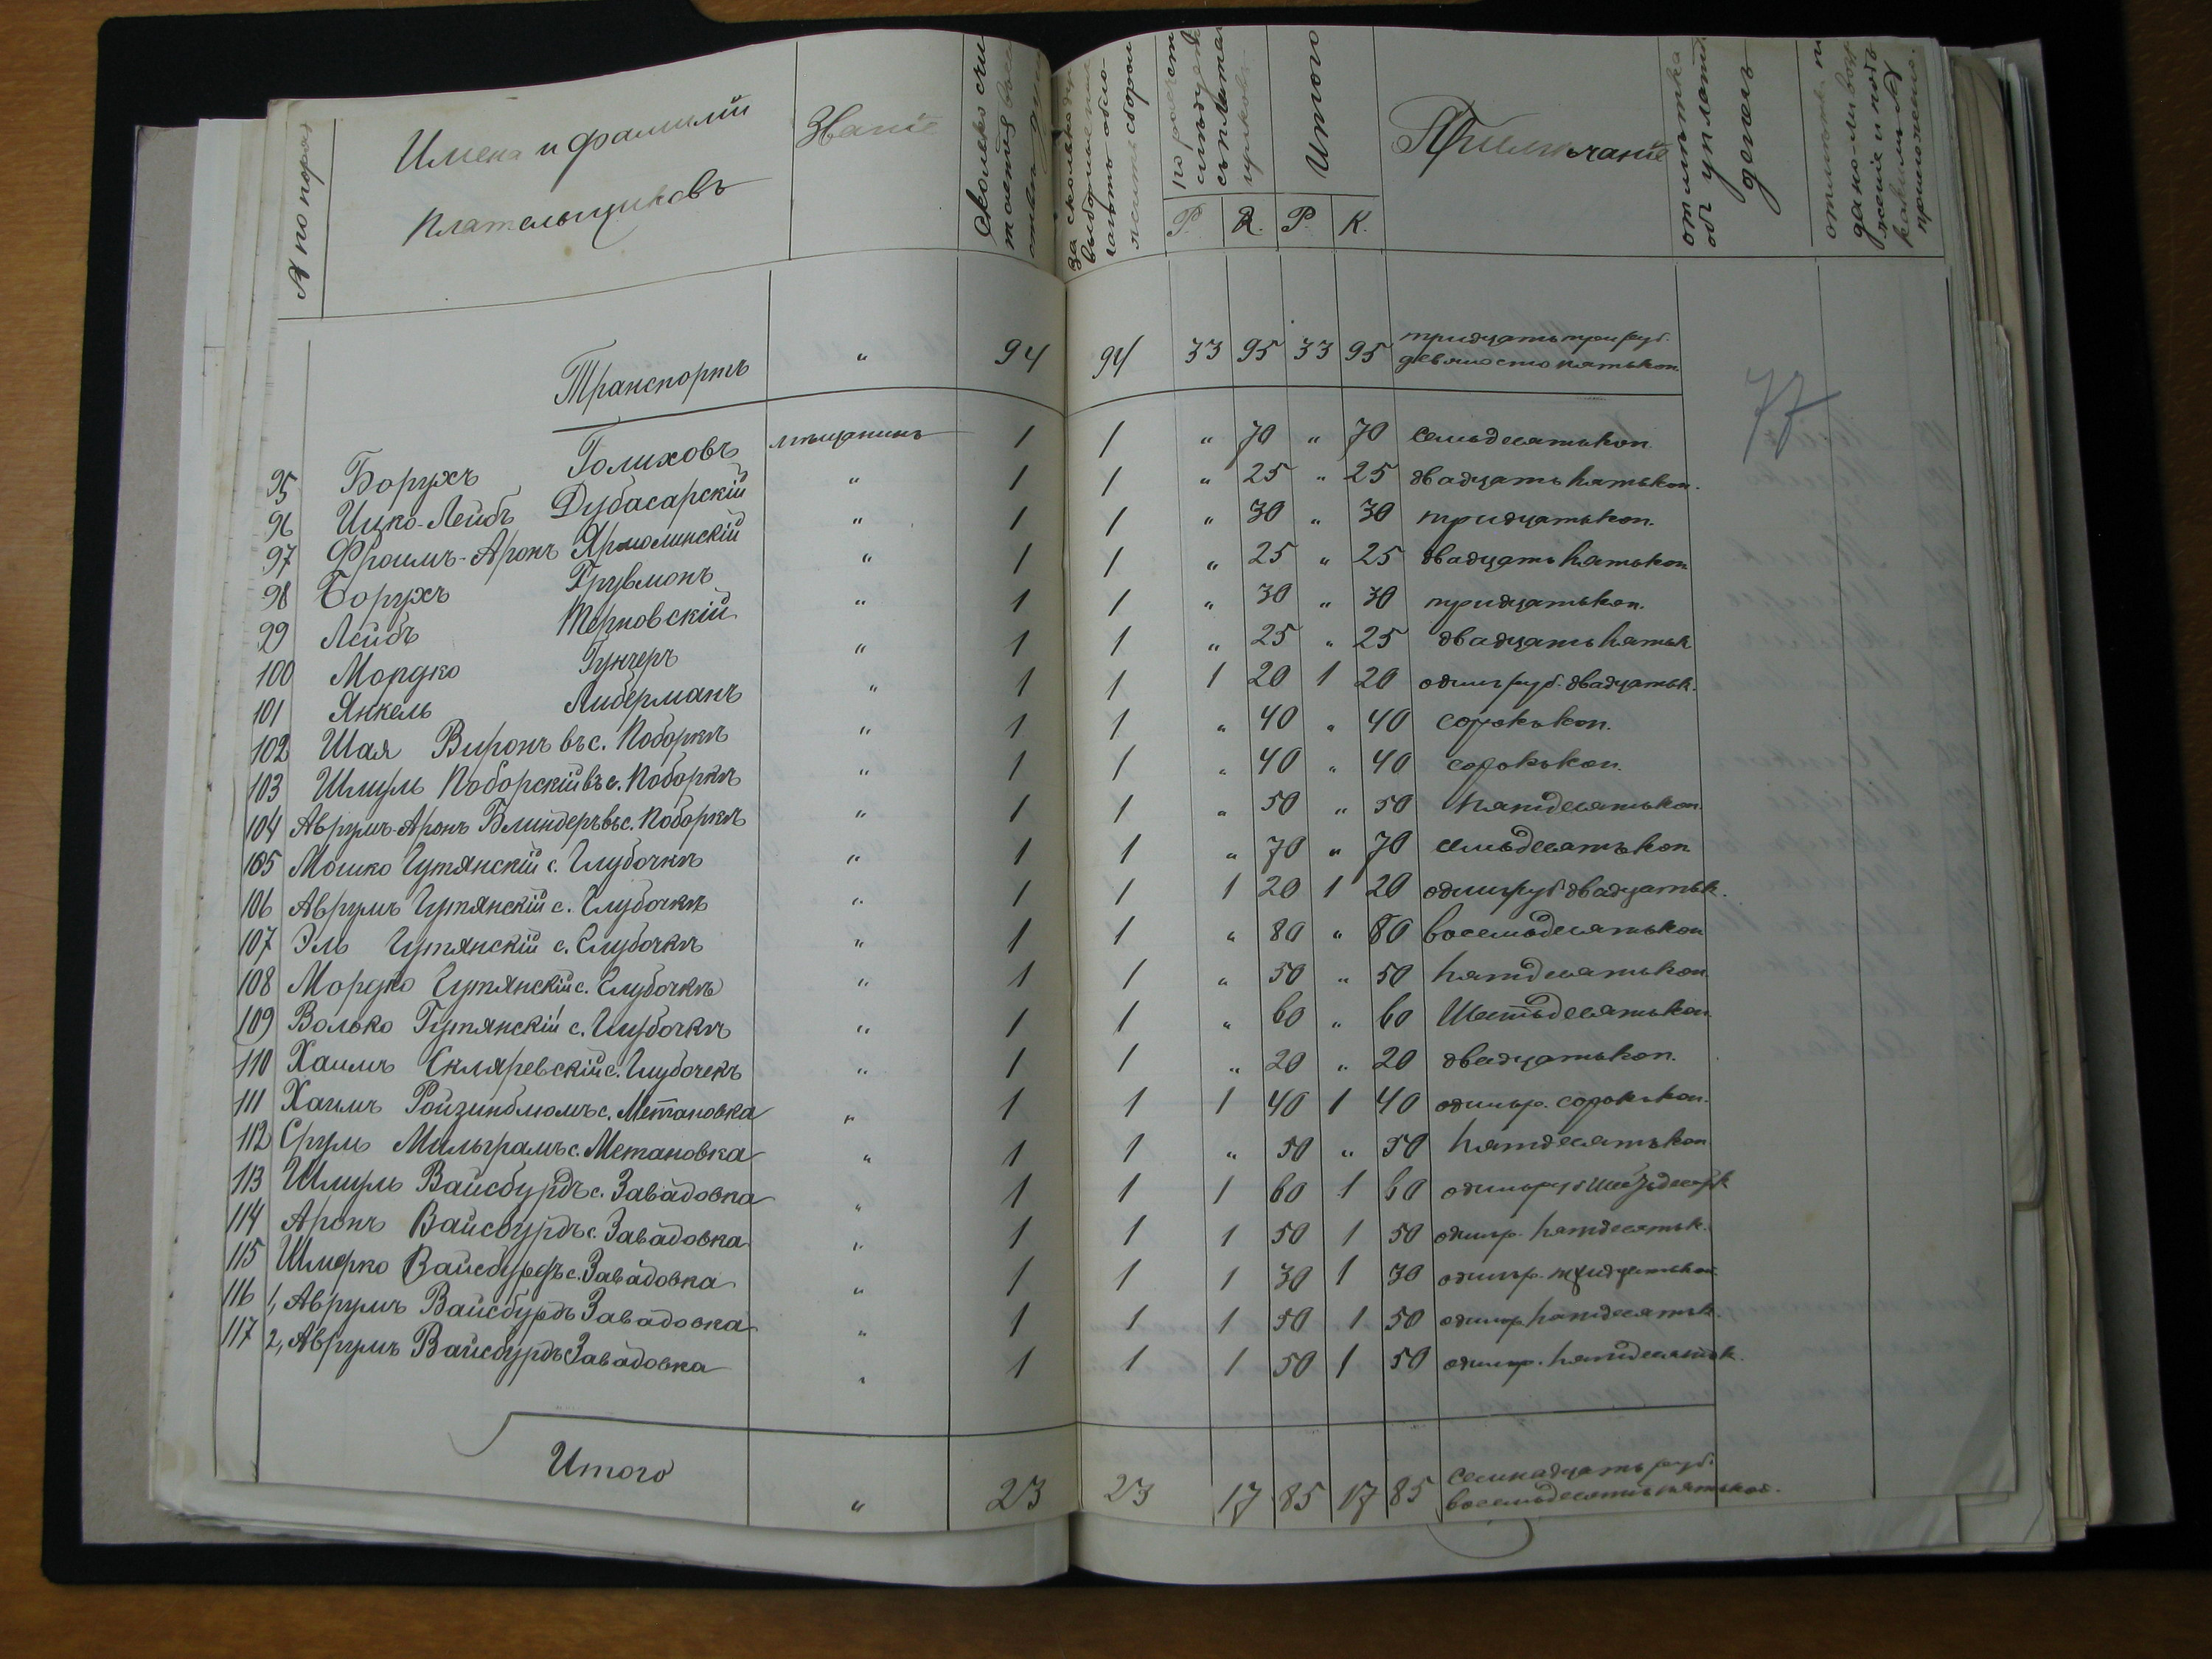 № по поряд
Имена и фамилій
плательщиковъ
Званіе
Сколько
за сколько
сборомъ
по
Итого
Примѣчаніе
отмѣтка
объ уплатѣ
денегъ
отмѣтка
Р. К. Р. К.
Транспортъ " 94 94 33 95 33 95 тридцать три руб.
девяносто пять коп
77
95 Борухъ Голиховъ мѣщанинъ 1 1 " 70 " 70 семьдесять коп.
96 Ицко-Лейбъ Дубасарскій " 1 1 " 25 " 25 двадцать пять коп.
97 Фроимъ-Аронъ Ярмолинскій " 1 1 " 30 " 30 тридцать коп.
98 Борухъ Грувмонъ " 1 1 " 25 " 25 двадцать пять коп
99 Лейбъ Терновскій " 1 1 " 30 " 30 тридцать коп.
100 Мордко Гунчеръ " 1 1 " 25 " 25 двадцать пять к
101 Янкель Либерманъ " 1 1 1 20 1 20 одинъ руб. двадцать к.
102 Шая Виронъ въ с. Поборкѣ " 1 1 " 40 " 40 сорокъ коп.
103 Шмуль Поборскій въ с. Поборкѣ " 1 1 " 40 " 40 сорокъ коп.
104 Аврумъ-Аронъ Блиндеръ въ с. Поборкѣ " 1 1 " 50 " 50 пятдесять коп.
105 Мошко Гутянскій с. Глубочкѣ " 1 1 " 70 " 70 семьдесять коп
106 Аврумъ Гутянскій с. Глубочкѣ " 1 1 1 20 1 20 одинъ руб двадцать к.
107 Эль Гутянскій с. Глубочкѣ " 1 1 " 80 " 80 восемьдесять коп
108 Мордко Гутянскій с. Глубочкѣ " 1 1 " 50 " 50 пятдесять коп.
109 Волько Гутянскій с. Глубочкѣ " 1 1 " 60 " 60 шестьдесять коп.
110 Хаимъ Скляревскій с. Глубочекъ " 1 1 " 20 " 20 двадцать коп.
111 Хаимъ Ройзинблюмъ с. Метановка " 1 1 1 40 1 40 одинъ р. сорокъ коп.
112 Сруль Мильграмъ с. Метановка " 1 1 " 50 " 50 пятдесять коп
113 Шмуль Вайсбурдъ с. Завадовка " 1 1 1 60 1 60 одинъ руб
114 Аронъ Вайсбурдъ с. Завадовка " 1 1 1 50 1 50 одинъ р. пятдесять к.
115 Шмерко Вайсбурдъ с. Завадовка " 1 1 1 30 1 30 одинъ р. тридцать коп.
116 1, Аврумъ Вайсбурдъ Завадовка " 1 1 1 50 1 50 одинъ р пятдесять к.
117 2, Аврумъ Вайсбурдъ Завадовка " 1 1 1 50 1 50 одинъ р. пятдесять к.
Итого " 23 23 17 85 17 85 семнадцать руб.
восемьдесять пять коп.